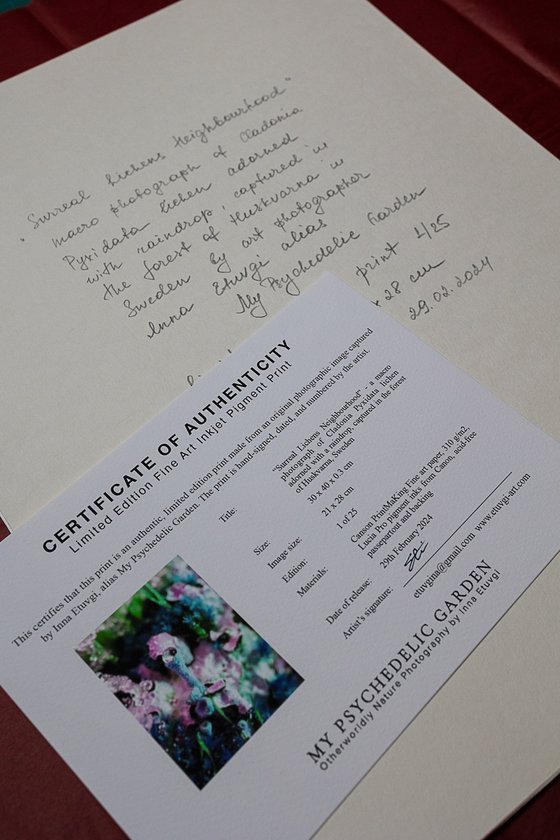 "Surreal Lichens Neighbourhood"
macro photograph of Cladonia
Pyxidata lichen adorned
with raindrop, captured in
the forest of Huskvarna in
Sweden by art photographer
Inna Etuvgi alias
My Psychedelic Garden
print 1/25
x 28 cm
29.02.2024
CERTIFICATE OF AUTHENTICITY
Limited Edition Fine Art Inkjet Pigment Print
This certifies that this print is an authentic, limited edition print made from an original photographic image captured
by Inna Etuvgi, alias My Psychedelic Garden. The print is hand-signed, dated, and numbered by the artist.
Title: "Surreal Lichens Neighbourhood" - a macro
photograph of Cladonia Pyxidata lichen
adorned with a raindrop, captured in the forest
of Huskvarna, Sweden
Size: 30 x 40 x 0.3 cm
Image size: 21 x 28 cm
Edition: 1 of 25
Materials: Canson PrintMaKing Fine art paper, 310 g/m2,
Lucia Pro pigment inks from Canon, acid-free
passepartout and backing
Date of release: 29th February 2024
Artist's signature:
etuvgina@gmail.com www.etuvgi-art.com
MY PSYCHEDELIC GARDEN
Otherworldly Nature Photography by Inna Etuvgi